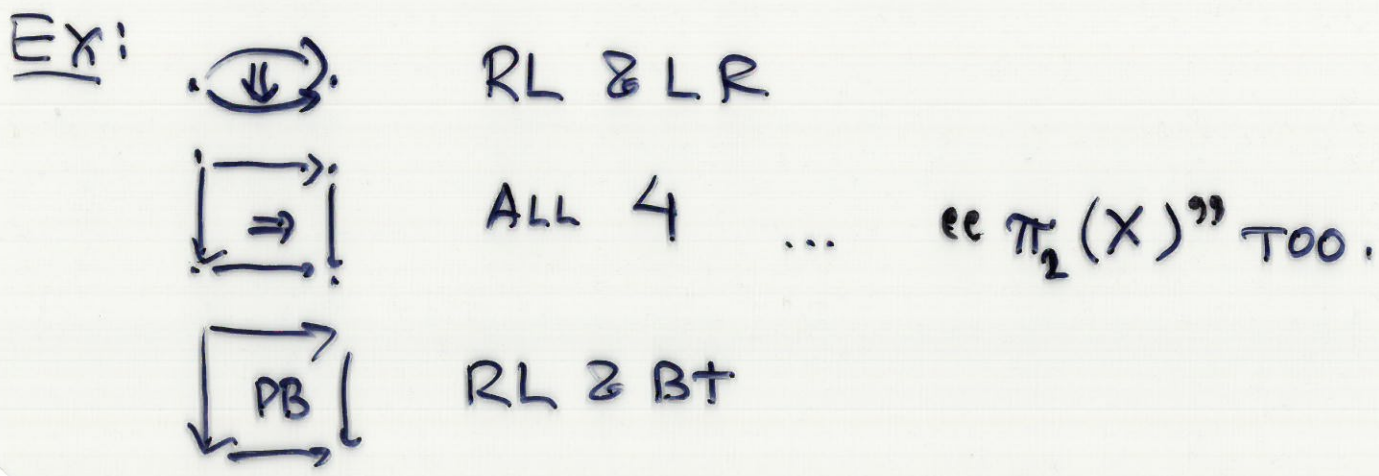 Ex:
RL & LR
ALL 4 ... “π₂(X)” TOO.
PB RL & BT